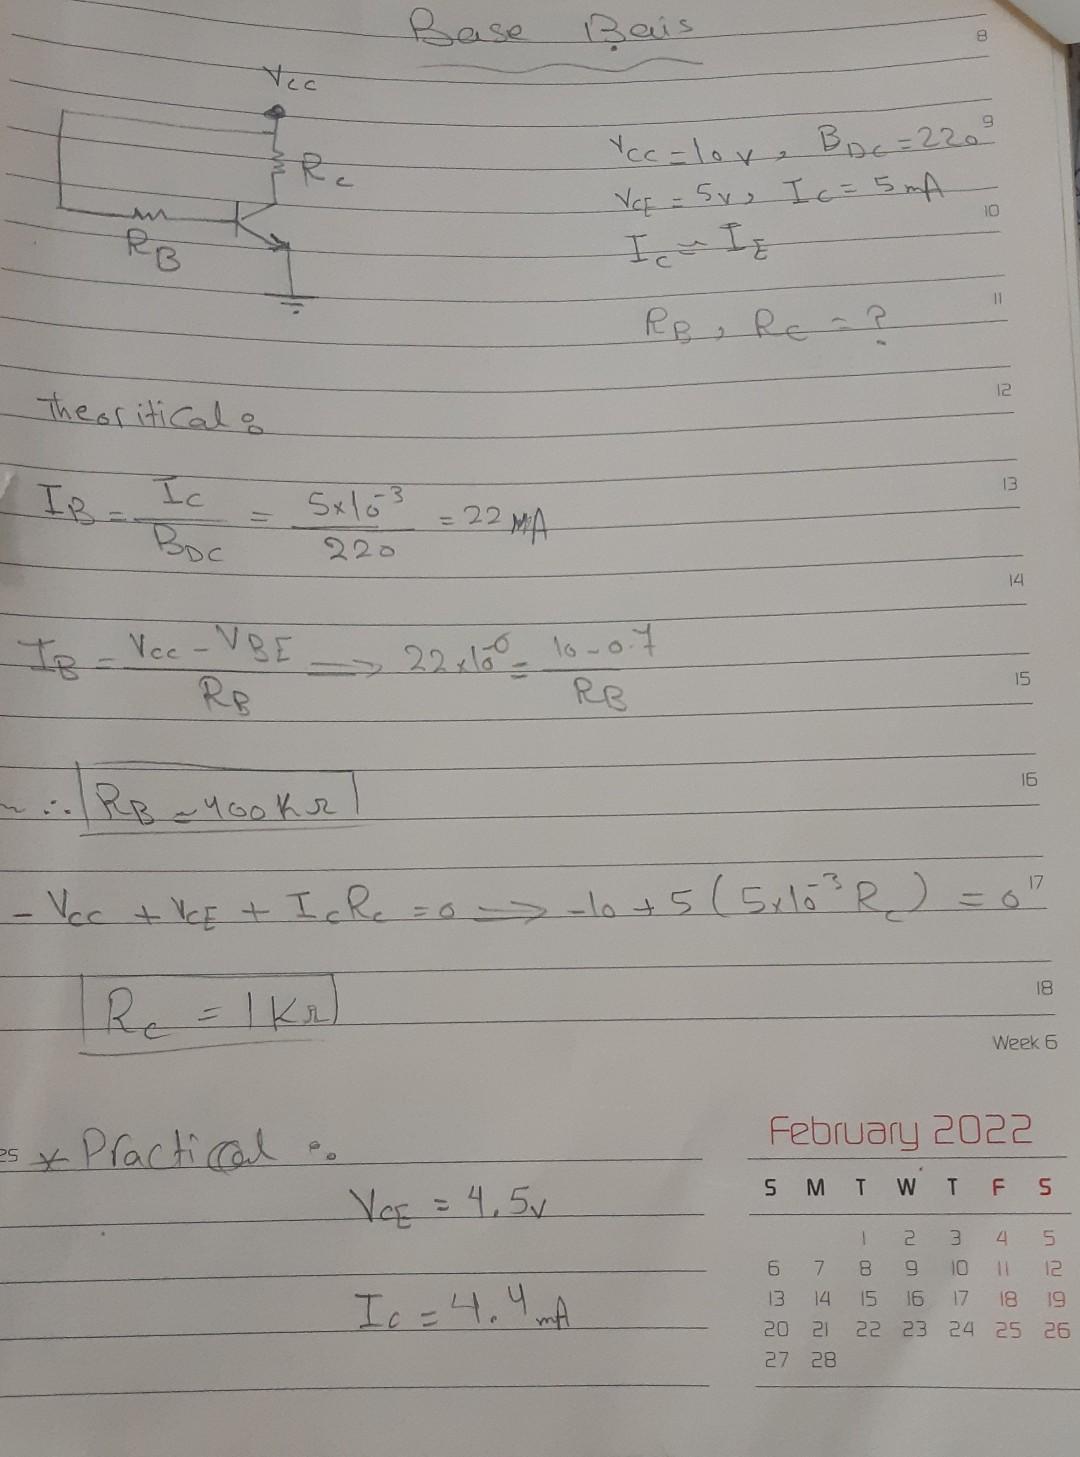 Base Bais
8
Vcc
Rc
RB
9
Vcc = 10 v , BDC = 220
VCE = 5v, Ic = 5 mA
10
Ic ≈ IE
11
RB , Rc = ?
12
Theoritical :
13
IB = Ic / BDC = 5x10^-3 / 220 = 22 MA
14
IB = Vcc - VBE / RB → 22x10^-6 = 10 - 0.7 / RB
15
16
∴ RB ≈ 400 KΩ
17
- Vcc + VCE + IcRc = 0 ⇒ -10 + 5 ( 5x10^-3 Rc ) = 0
18
Rc = 1 KΩ
Week 6
es * Practical :
VCE = 4.5v
Ic = 4.4 mA
February 2022
S M T W T F S
1 2 3 4 5
6 7 8 9 10 11 12
13 14 15 16 17 18 19
20 21 22 23 24 25 26
27 28